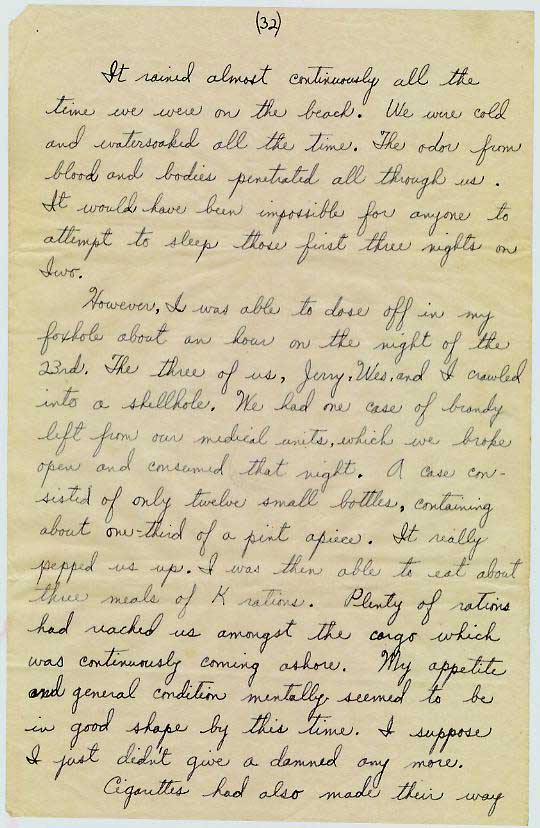 (32)
It rained almost continuously all the
time we were on the beach. We were cold
and watersoaked all the time. The odor from
blood and bodies penetrated all through us.
It would have been impossible for anyone to
attempt to sleep those first three nights on
Iwo.
However, I was able to dose off in my
foxhole about an hour on the night of the
23rd. The three of us, Jerry, Wes, and I crawled
into a shellhole. We had one case of brandy
left from our medical units, which we broke
open and consumed that night. A case con-
sisted of only twelve small bottles, containing
about one-third of a pint apiece. It really
pepped us up. I was then able to eat about
three meals of K rations. Plenty of rations
had reached us amongst the cargo which
was continuously coming ashore. My appetite
and general condition mentally seemed to be
in good shape by this time. I suppose
I just didn't give a damned any more.
Cigarettes had also made their way